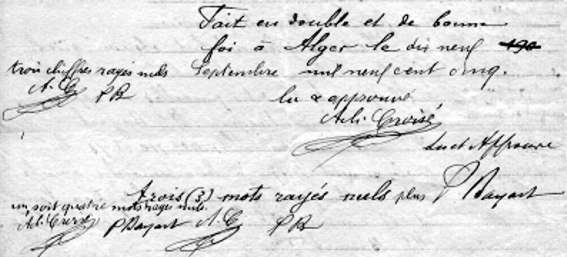 Fait en double et de bonne
foi à Alger le dix neuf 190
trois chiffres rayés nuls Septembre mil neuf cent cinq.
A. C PB
lu & approuvé
Ach. Croisé
Lu et Approuvé
trois (3) mots rayés nuls plus P Bayart
un soit quatre mots rayés nuls.
Ach. Croisé P Bayart A. C PB